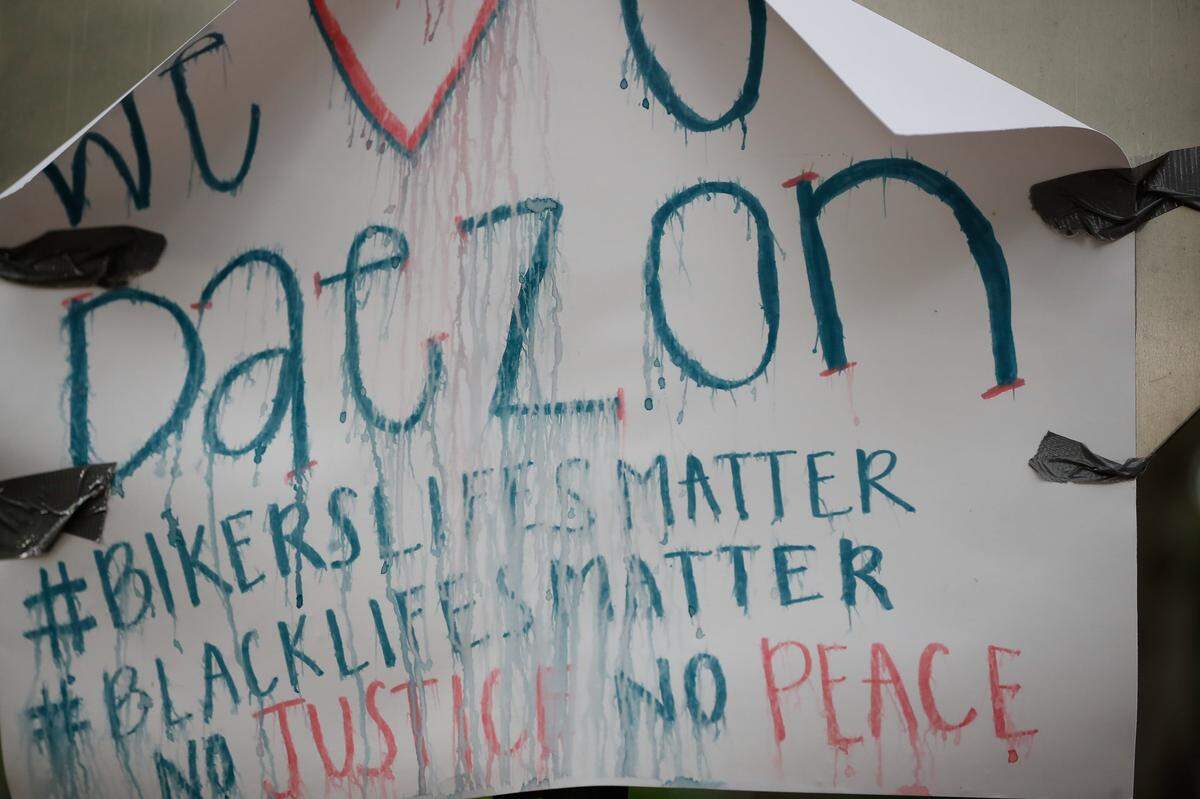 We ♥ U
DaeZon
#BIKERSLIFESMATTER
#BLACKLIFESMATTER
NO JUSTICE NO PEACE